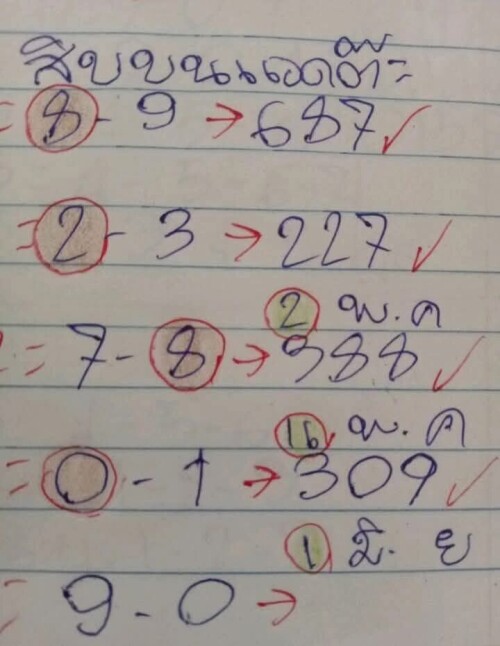 สิบบนแอดติ๊ะ
= 8 - 9 → 687 ✓
= 2 - 3 → 227 ✓
2 พ.ค
= 7 - 8 → 988 ✓
16 พ.ค
= 0 - 1 → 309 ✓
1 มิ. ย
= 9 - 0 →